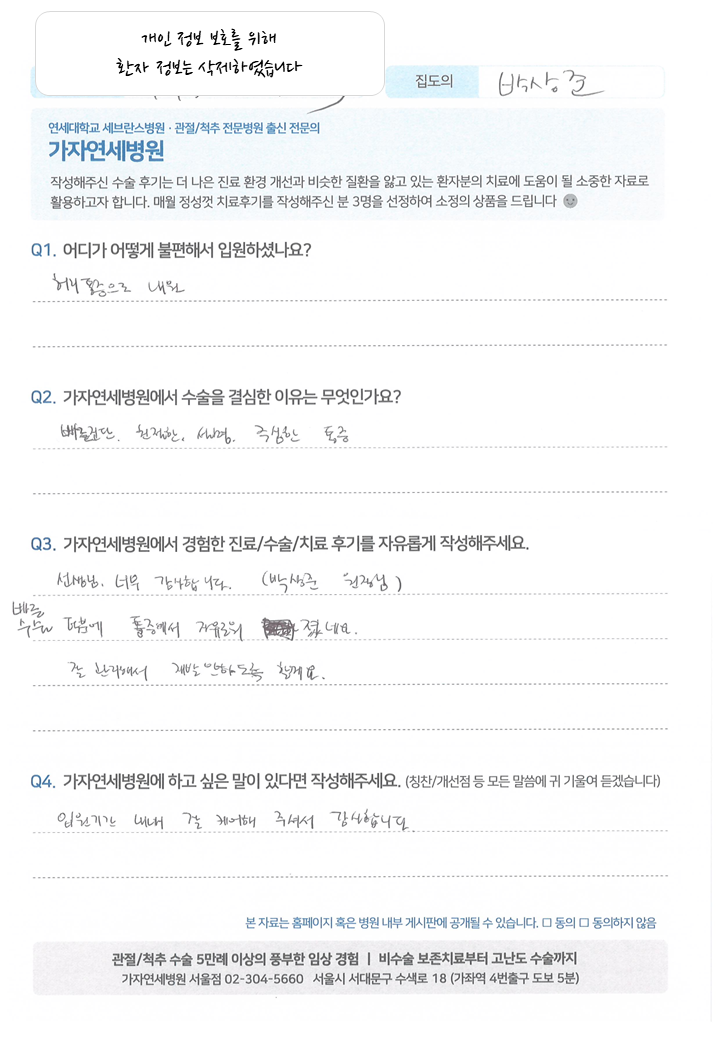 개인 정보 보호를 위해
환자 정보는 삭제하였습니다
집도의 박상준
연세대학교 세브란스병원 · 관절/척추 전문병원 출신 전문의
가자연세병원
작성해주신 수술 후기는 더 나은 진료 환경 개선과 비슷한 질환을 앓고 있는 환자분의 치료에 도움이 될 소중한 자료로
활용하고자 합니다. 매월 정성껏 치료후기를 작성해주신 분 3명을 선정하여 소정의 상품을 드립니다
Q1. 어디가 어떻게 불편해서 입원하셨나요?
허리 통증으로 내원
Q2. 가자연세병원에서 수술을 결심한 이유는 무엇인가요?
빠른진단. 친절한. 설명. 극심한 통증
Q3. 가자연세병원에서 경험한 진료/수술/치료 후기를 자유롭게 작성해주세요.
선생님. 너무 감사합니다. (박상준 원장님)
빠른
수술 덕분에 통증에서 자유로워 졌네요.
잘 관리해서 재발 안하도록 할게요.
Q4. 가자연세병원에 하고 싶은 말이 있다면 작성해주세요. (칭찬/개선점 등 모든 말씀에 귀 기울여 듣겠습니다)
입원기간 내내 잘 케어해 주셔서 감사합니다.
본 자료는 홈페이지 혹은 병원 내부 게시판에 공개될 수 있습니다. □ 동의 □ 동의하지 않음
관절/척추 수술 5만례 이상의 풍부한 임상 경험 | 비수술 보존치료부터 고난도 수술까지
가자연세병원 서울점 02-304-5660 서울시 서대문구 수색로 18 (가좌역 4번출구 도보 5분)